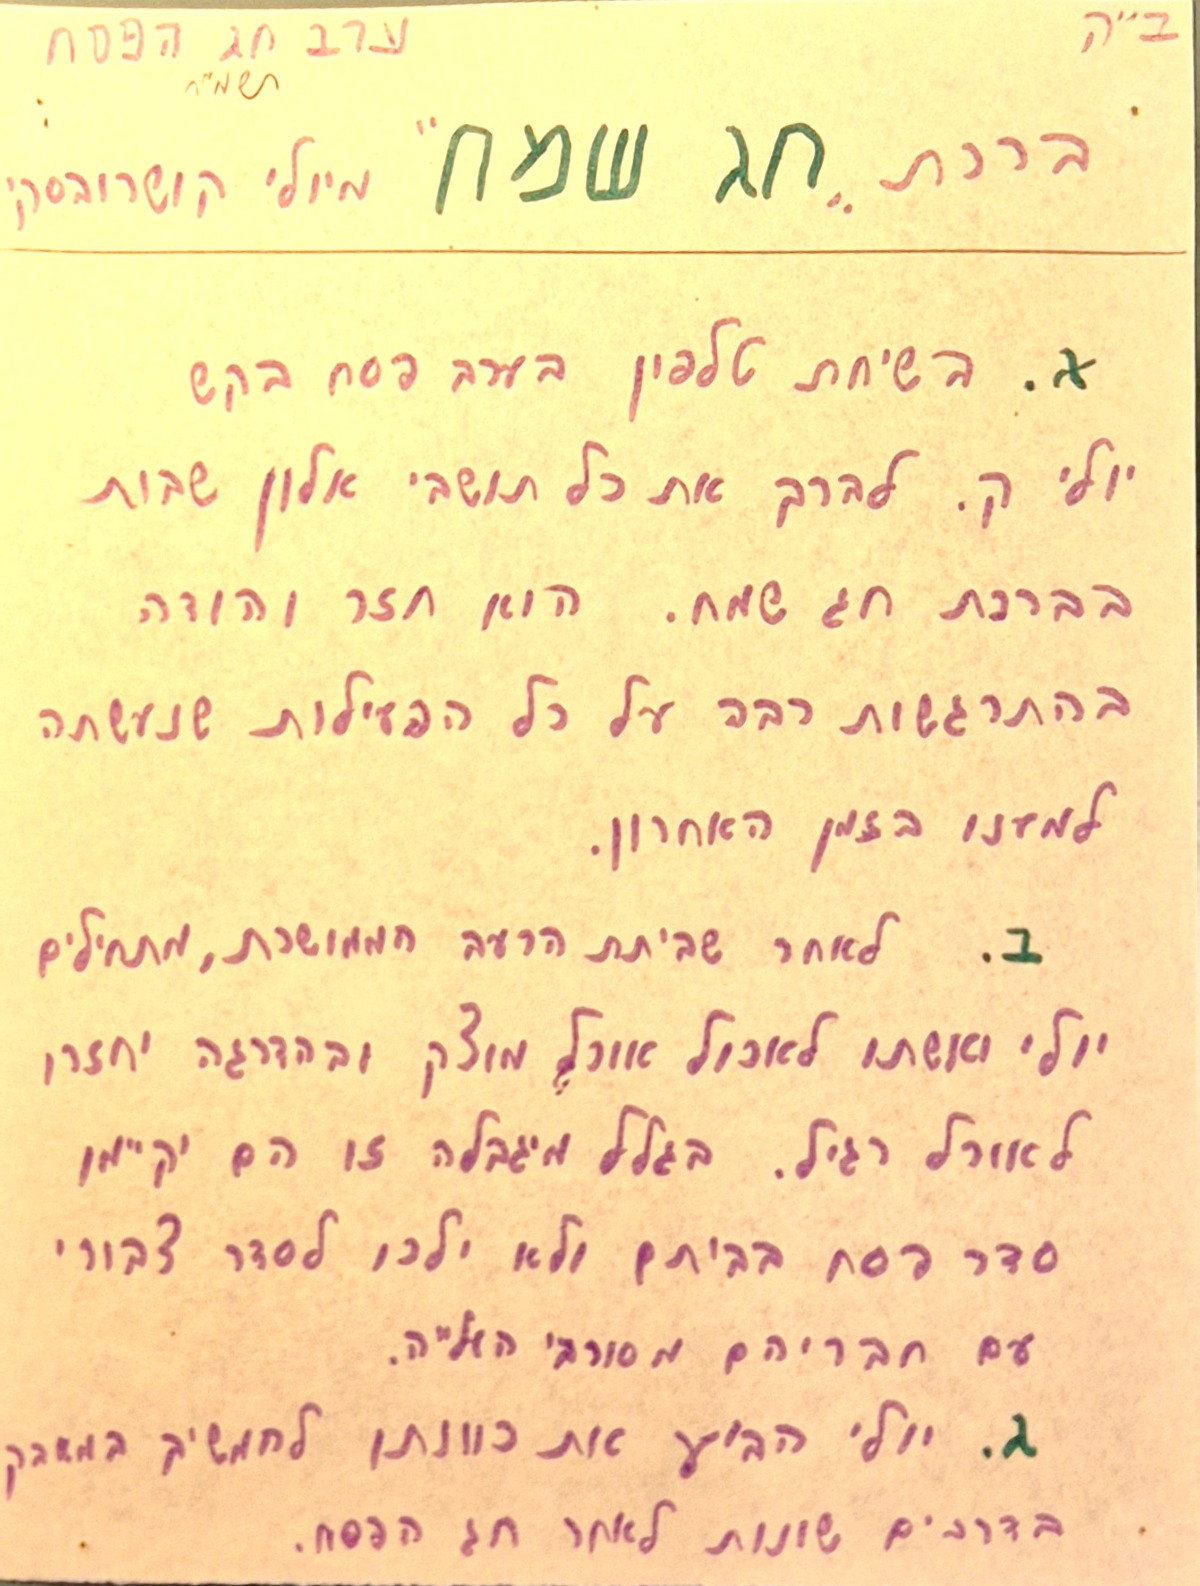 ב"ה
ערב חג הפסח
תשמ"ח
ברכת "חג שמח" מיולי קושרובסקי
א. בשיחת טלפון בערב פסח בקש
יולי ק. לברך את כל תושבי אלון שבות
בברכת חג שמח. הוא חזר והודה
בהתרגשות רבה על כל הפעילות שנעשתה
למענו בזמן האחרון.
ב. לאחר שביתת הרעב הממושכת, מתחילים
יולי ואשתו לאכול אוכל מוצק ובהדרגה יחזרו
לאוכל רגיל. בגלל מיגבלה זו הם יקיימו
סדר פסח בביתם ולא ילכו לסדר צבורי
עם חבריהם מסורבי העל"ה.
ג. יולי הביע את כוונתו להמשיך במאבק
בדרכים שונות לאחר חג הפסח.